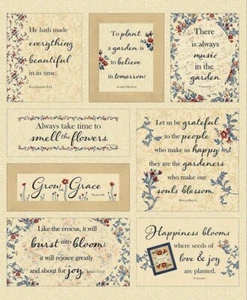 He hath made
everything
beautiful
in its time.
To plant
a garden is
to believe
in tomorrow.
There
is always
music
in the
garden.
Always take time to
smell the flowers.
Let us be grateful
to the people
who make us happy:
they are the gardeners
who make our
souls blossom.
Grow in Grace
Like the crocus, it will
burst into bloom:
it will rejoice greatly
and shout for joy.
Happiness blooms
where seeds of
love & joy
are planted.